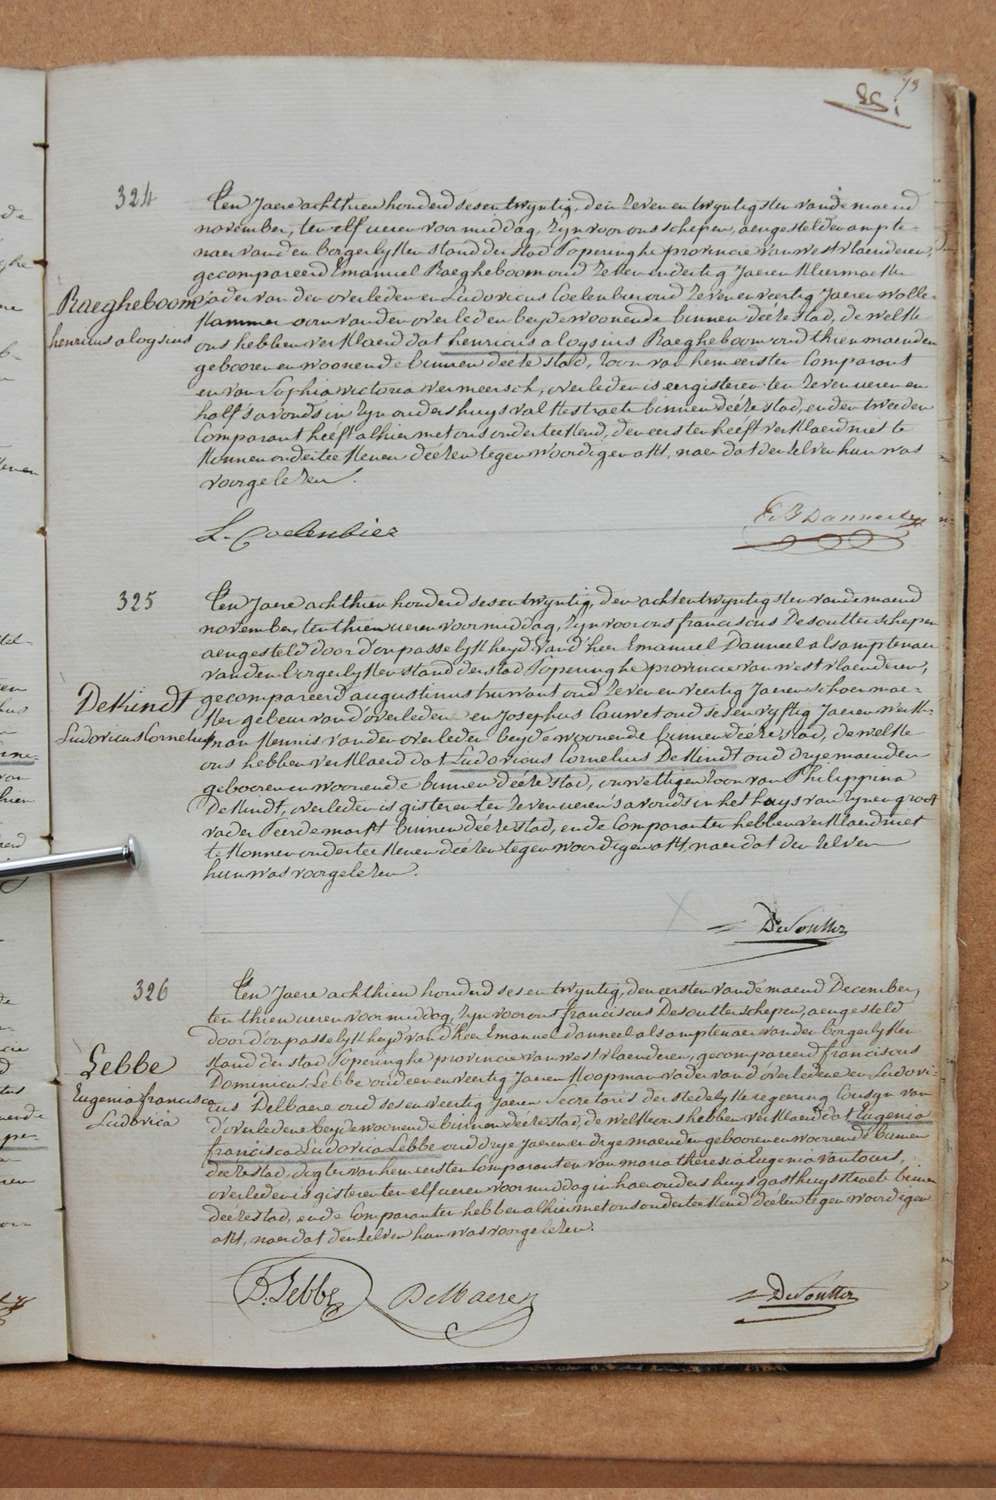 73
324
Raegheboom
henricus aloysius
Ten Jaere achthien honderd sesentwyntig, den zeven en twyntigsten vande maend
november, ten elf ueren voormiddag, zyn voor ons schepen, aengestelden ampte-
naer van den borgerlyken stand der stad Poperinghe provincie van westvlaenderen,
gecompareerd Emanuel Raegheboom oud zeven en dertig Jaeren kleermaeker
vader van den overledenen Ludovicus Coelenbier oud zeven en veertig Jaeren wolle-
kammer oom van den overleden beyde woonende binnen deéze stad, de welke
ons hebben verklaerd dat henricus aloysius Raegheboom oud thien maenden
geboren en woonende binnen deéze stad, zoon van hem eersten Comparant
en van Sophia victoria vermeersch, overleden is eergisteren ten zeven ueren en
half s'avonds in zyn ouders huys valkestraete binnen deéze stad, en den tweeden
Comparant heeft alhier met ons onderteekend, den eersten heeft verklaerd niet te
konnen onderteekenen deézen tegenwoordigen akt, naer dat den zelven hun was
voorgelezen.
L. Coelenbier
325
DeKindt
Ludovicus Cornelius
Ten Jaere achthien honderd sesentwyntig, den achtentwyntigsten vande maend
november, ten thien ueren voormiddag, zyn voor ons franciscus Desoutter schepen
aengesteld door d'onpasselykheyd van d'heer Emanuel Danneel als amptenaer
van den borgerlyken stand der stad Poperinghe provincie van westvlaenderen,
gecompareerd augustinus huwant oud zeven en veertig Jaeren schoenmae-
ker gebeur van d'overleden en Josephus Cauwet oud ses en vyftig Jaeren werk-
man kennis van den overleden beyde woonende binnen deéze stad, de welke
ons hebben verklaerd dat Ludovicus Cornelius DeKindt oud drye maenden
geboren en woonende binnen deéze stad, onwettigen zoon van Philippina
DeKindt, overleden is gisteren ten zeven ueren s'avonds in het huys van zynen groot
vader Peerdemarkt binnen deéze stad, en de Comparanten hebben verklaerd niet
te konnen onderteekenen deézen tegenwoordigen akt, naer dat den zelven
hun was voorgelezen.
DeSoutter
326
Lebbe
Eugenia francisca
Ludovica
Ten Jaere achthien honderd sesentwyntig, den eersten vande maend December,
ten thien ueren voormiddag, zyn voor ons franciscus Desoutter schepen, aengesteld
door d'onpasselykheyd van d'heer Emanuel danneel als amptenaer van den borgerlyken
stand der stad Poperinghe provincie van westvlaenderen, gecompareerd franciscus
Dominicus Lebbe oud een en veertig Jaeren koopman vader van d'overledene en Ludovi-
cus Delbaere oud ses en veertig Jaeren secretaris der stedelyke regering Cousyn van
d'overledene beyde woonende binnen deéze stad, de welke ons hebben verklaerd dat Eugenia
francisca Ludovica Lebbe oud drye Jaeren en drye maenden geboren en woonende binnen
deéze stad, dogter van hem eersten Comparant en van maria theresia Eugenia vantours,
overleden is gisteren ten elf ueren voormiddag in haer ouders huys gasthuysstraete binnen
deéze stad, en de Comparanten hebben alhier met ons onderteekend deézen tegenwoordigen
akt, naer dat den zelven hun was voorgelezen.
D. Lebbe
Delbaere
DeSoutter